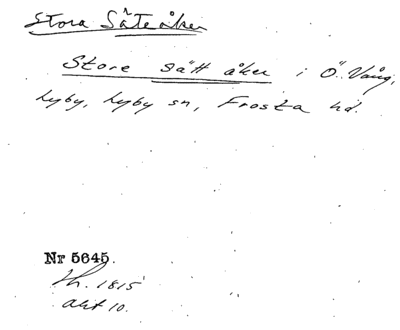 Stora Säteåker
Store sätt åker i Ö. Vång,
Lyby, Lyby sn, Frosta hd.
Nr 5645.
1815
akt 10.